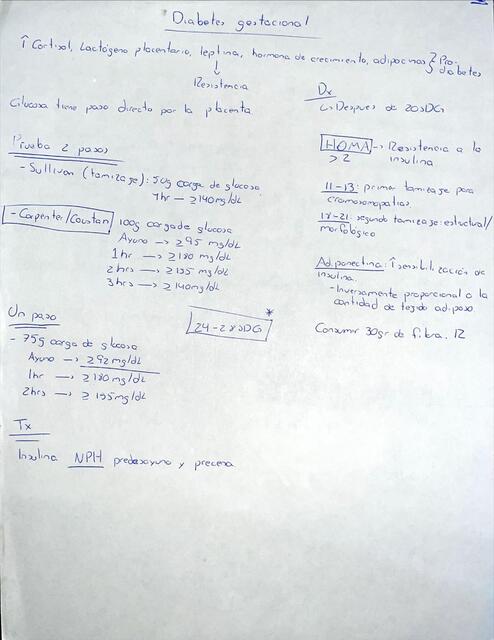 Diabetes gestacional
↑ Cortisol, Lactógeno placentario, leptina, hormona de crecimiento, adipocinas } Pro-
diabetes
↓
Resistencia
Glucosa tiene paso directo por la placenta.
Prueba 2 pasos
- Sullivan (tamizage): 50g carga de glucosa
1hr → ≥140mg/dL
- Carpenter/Coustan
100g carga de glucosa
Ayuno → ≥95 mg/dL
1hr → ≥180 mg/dL
2hrs → ≥155 mg/dL
3hrs → ≥140mg/dL
Un paso
- 75g carga de glucosa
Ayuno → ≥92mg/dL
1hr → ≥180mg/dL
2hrs → ≥155mg/dL
*
24-28SDG
Tx
Insulina NPH predesayuno y precena
Dx
↳ Despues de 20SDG
HOMA → Resistencia a la
>2 insulina
11-13: primer tamizage para
cromosomopatias.
18-21: segundo tamizage: estructural/
morfológico
Adiponectina: ↑ sensibilización de
insulina.
- Inversamente proporcional a la
cantidad de tejido adiposo
Consumir 30gr de fibra.